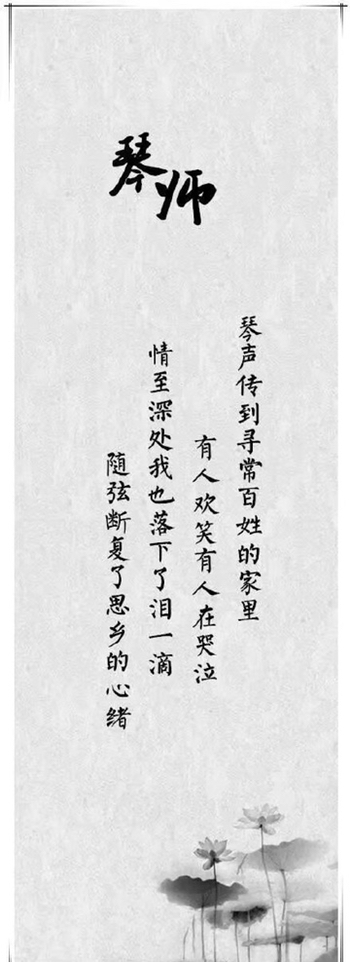 琴师
琴声传到寻常百姓的家里
有人欢笑有人在哭泣
情至深处我也落下了泪一滴
随弦断复了思乡的心绪